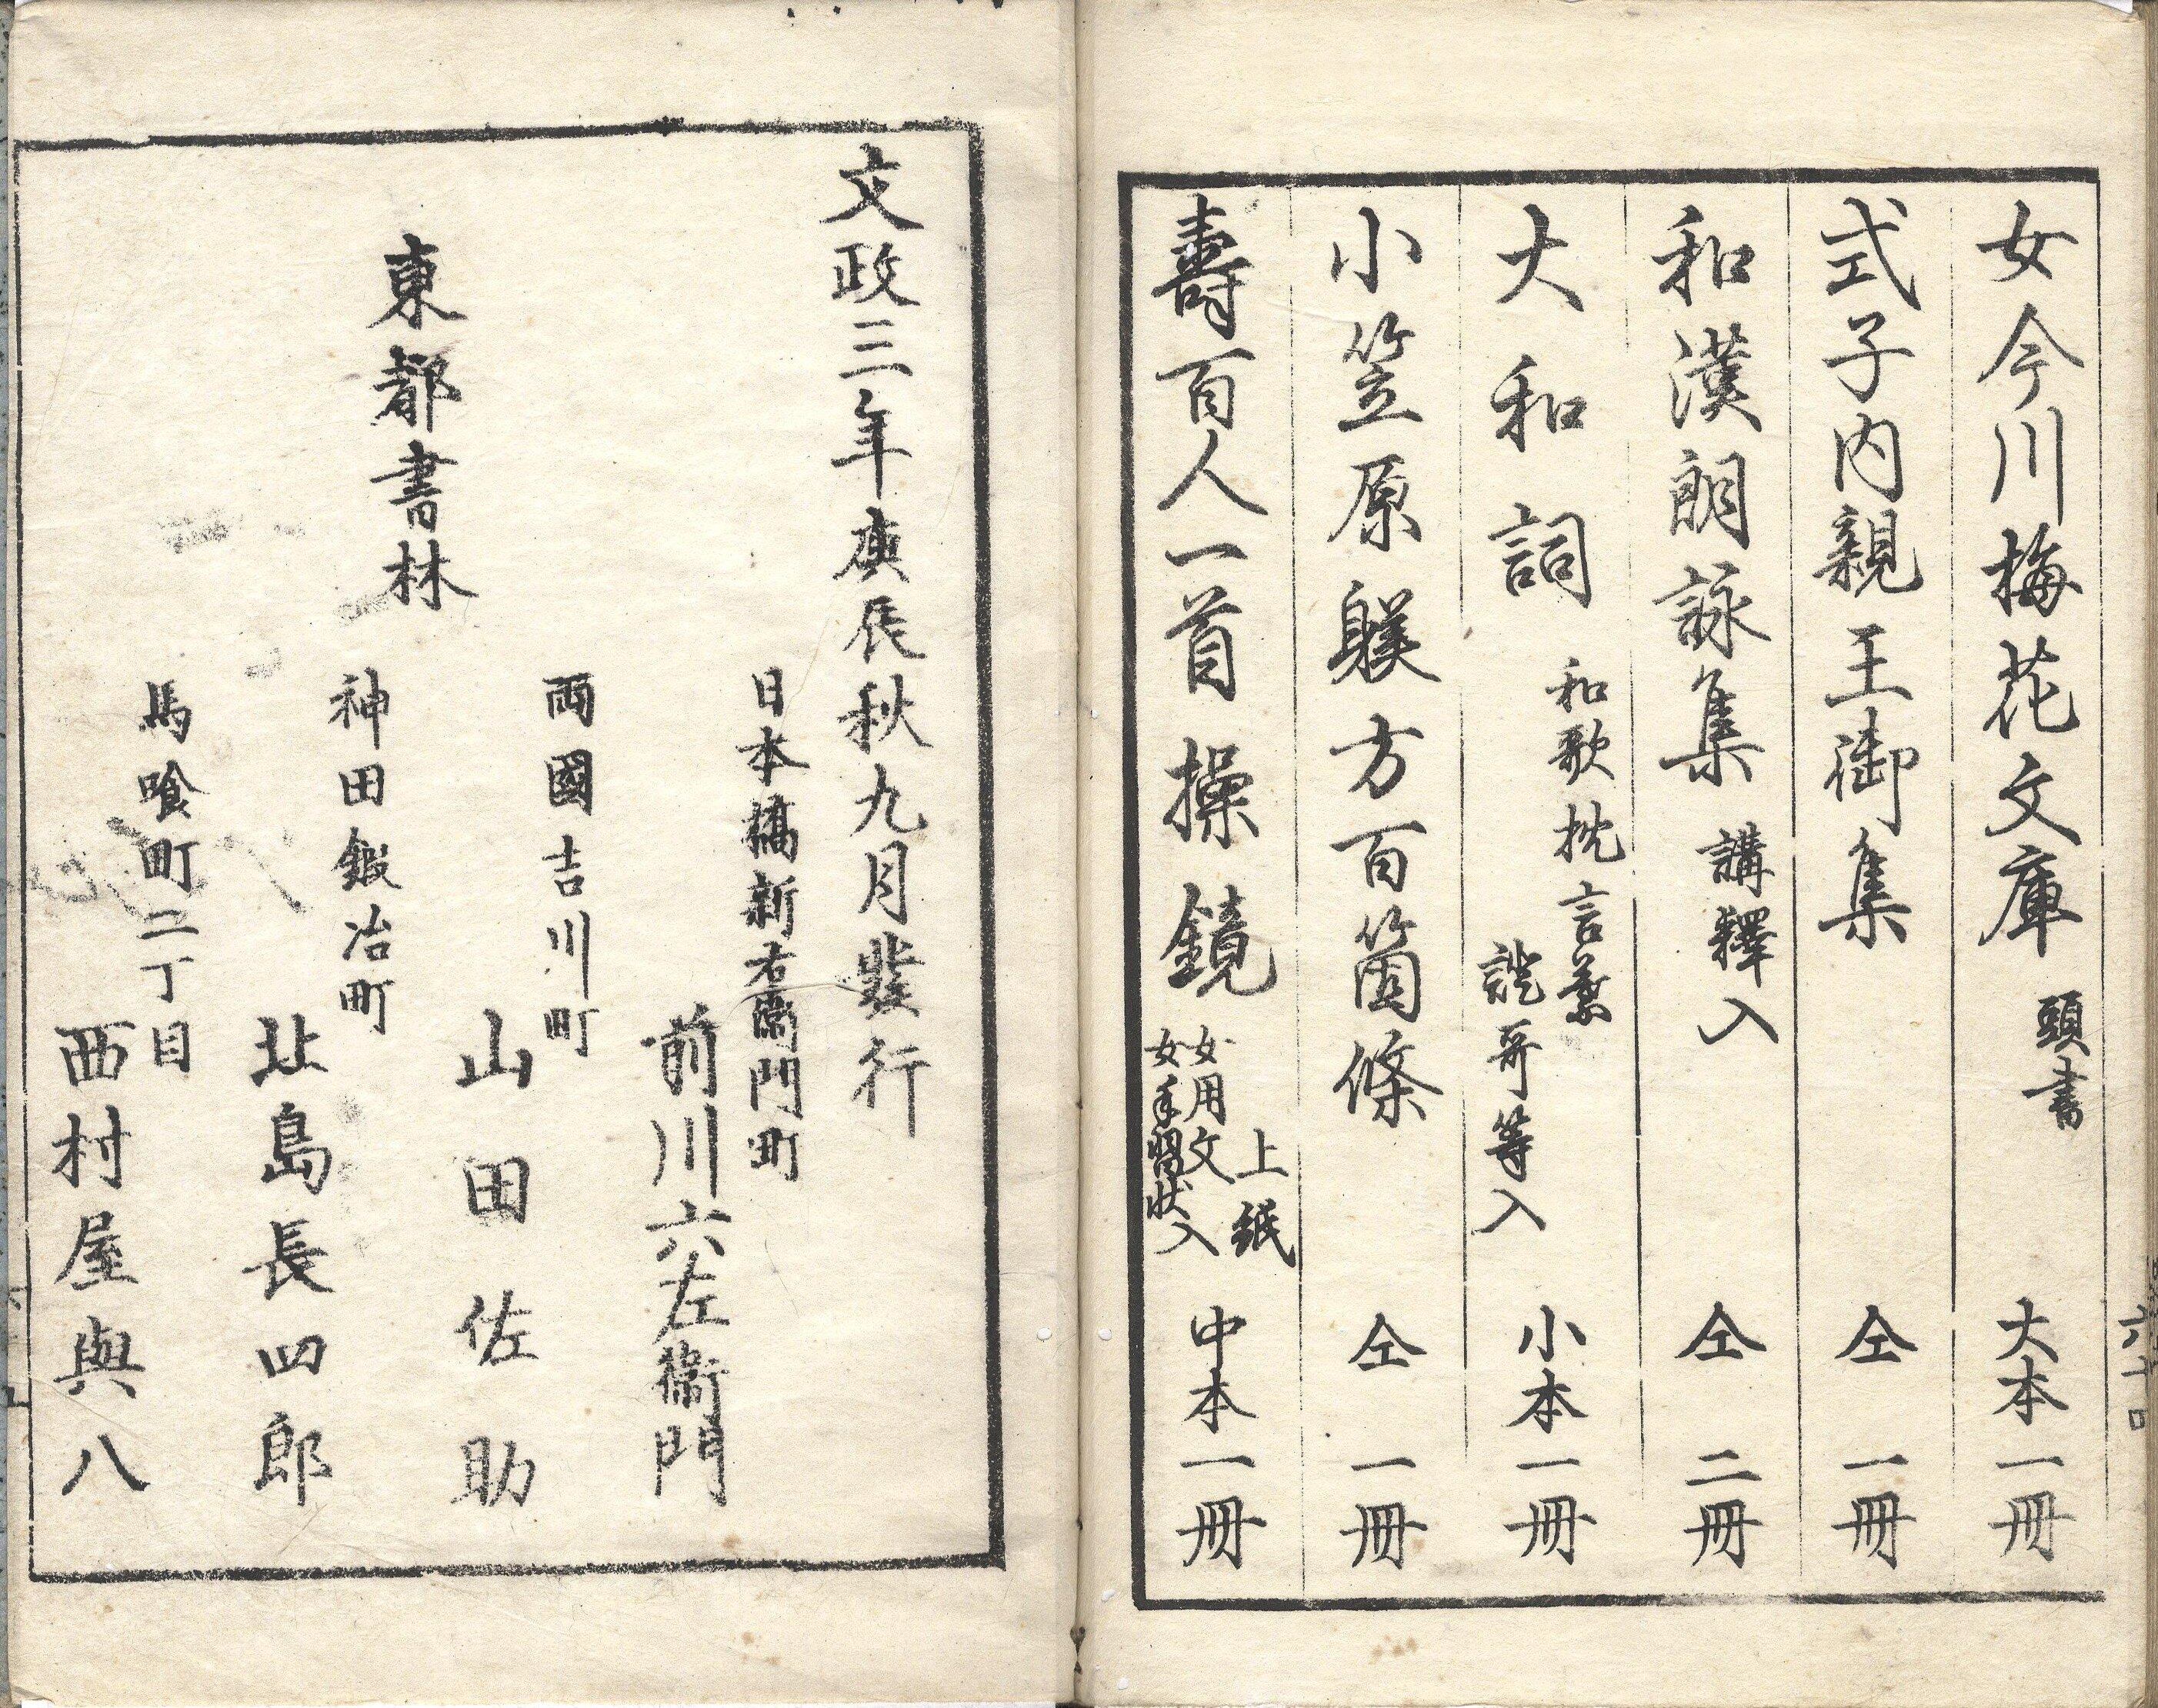 女今川梅花文庫 頭書 大本一冊
式子内親王御集 仝 一冊
和漢朗詠集 講釋入 仝 二冊
大和詞 和歌枕言葉
證哥等入 小本一冊
小笠原躾方百箇條 仝 一冊
壽百人一首操鏡 上紙
女用文
女手習状入 中本一冊
文政三年庚辰秋九月發行
東都書林
日本橋新右衞門町
前川六左衞門
両國吉川町
山田佐助
神田鍜冶町
北島長四郎
馬喰町二丁目
西村屋與八